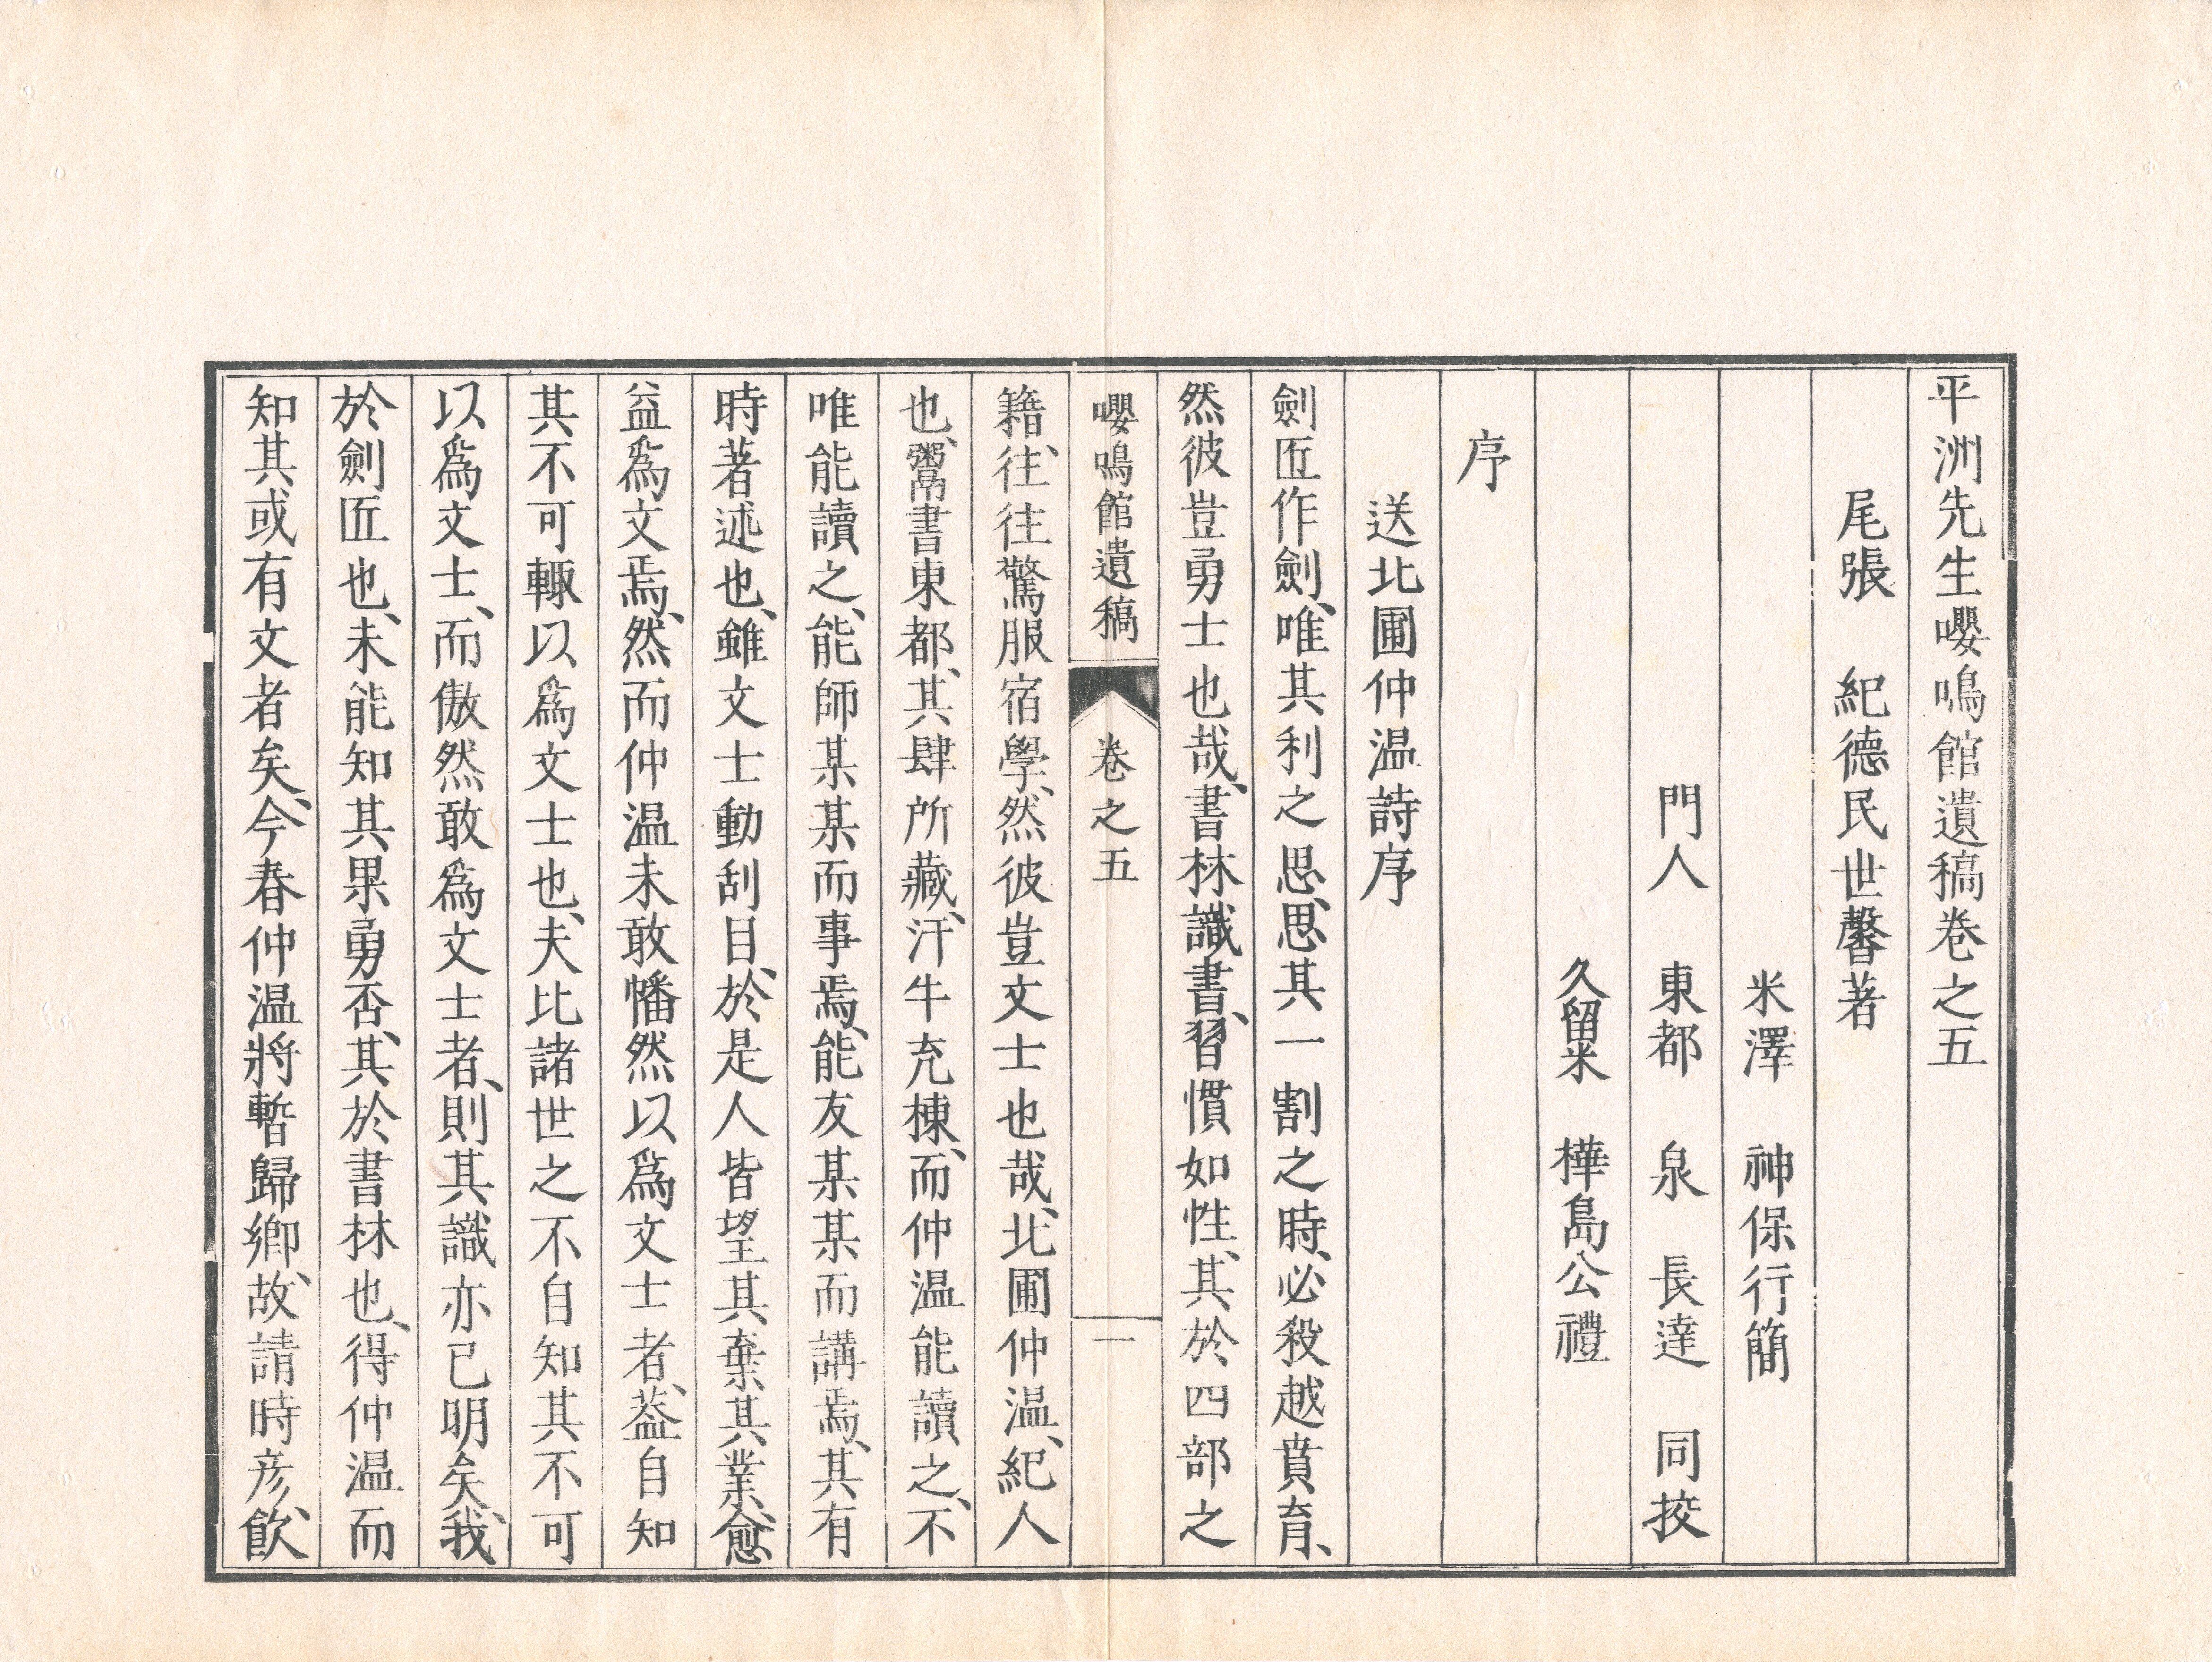 平洲先生嚶鳴館遺稿卷之五
尾張　紀德民世馨著
米澤　神保行簡
門人　東都　泉　長達　同挍
久留米　樺島公禮
序
送北圃仲温詩序
劍匠作劍、唯其利之思、思其一割之時、必殺越賁育、
然彼豈勇士也哉、書林識書、習慣如性、其於四部之
嚶鳴館遺稿　卷之五　一
籍、往往驚服宿學、然彼豈文士也哉、北圃仲温、紀人
也、鬻書東都、其肆所藏、汗牛充棟、而仲温能讀之、不
唯能讀之、能師某某而事焉、能友某某而講焉、其有
時著述也、雖文士動刮目、於是人皆望其棄其業、愈
益爲文焉、然而仲温未敢幡然以爲文士者、葢自知
其不可輙以爲文士也、夫比諸世之不自知其不可
以爲文士、而傲然敢爲文士者、則其識亦已明矣、我
於劍匠也、未能知其果勇否、其於書林也、得仲温而
知其或有文者矣、今春仲温將暫歸鄉、故請時彦、飲